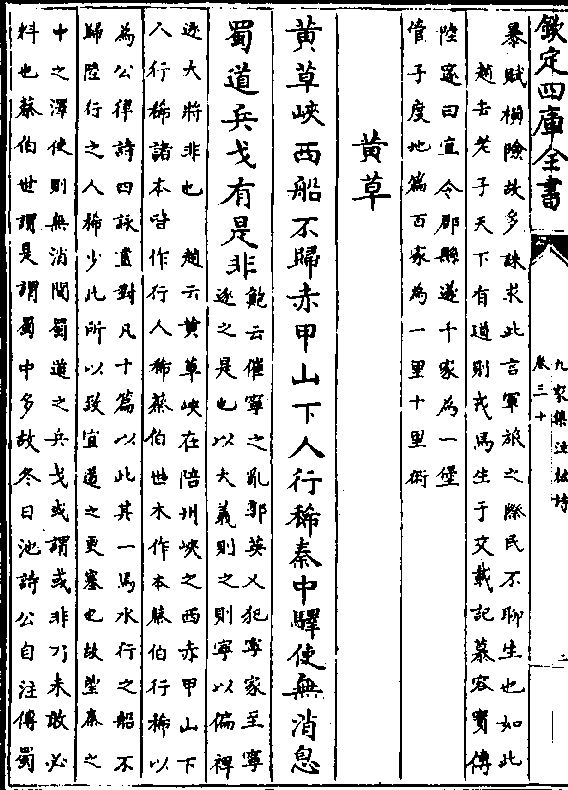 欽定四庫全書
九家集注杜詩
卷三十
二
暴賦相險故多誅求此言軍旅之際民不聊生也如此
趙云老子天下有道則戎馬生于交載記慕容寶傳
陸邃曰宜令郡縣遂千家為一堡
管子度地篇百家為一里十里術
黃草
黃草峽西船不歸赤甲山下人行稀秦中驛使無消息
蜀道兵戈有是非
鮑云催寧之亂郭英乂犯寧家至寧
逐之是也以大義則之則寧以偏裨
逐大將非也 趙云黃草峽在陪州峽之西赤甲山下
人行稀諸本皆作行人稀蔡伯世木作本縣伯行稀以
為公律詩四詠盡對凡十篇以此其一焉水行之船不
歸陸行之人稀少此所以致宜道之更塞也故望秦之
中之澤使則無消間蜀道之兵戈或謂或非乃未敢必
料也蔡伯世謂是謂蜀中多故冬日池詩公自注傳蜀